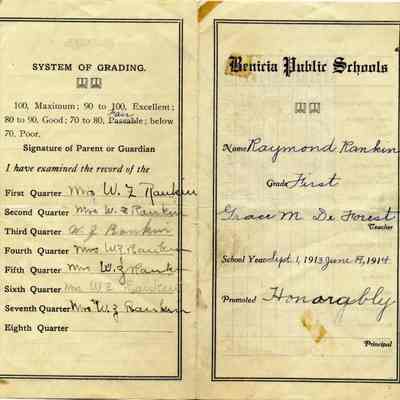 SYSTEM OF GRADING.
100, Maximum; 90 to 100, Excellent;
Fair
80 to 90, Good; 70 to 80, Passable; below
70. Poor.
Signature of Parent or Guardian
I have examined the record of the
First Quarter Mrs W. Z Rankin
Second Quarter Mrs W. Z Rankin
Third Quarter W. Z Rankin
Fourth Quarter Mrs WZ Rankin
Fifth Quarter Mrs W. Z Rankin
Sixth Quarter Mrs W Z Rankin
Seventh Quarter Mrs W Z Rankin
Eighth Quarter
Benicia Public Schools
Name Raymond Rankin
Grade First
Grace M De Forest
Teacher
School Year Sept 1, 1913 June 19, 1914
Promoted Honorably
Principal